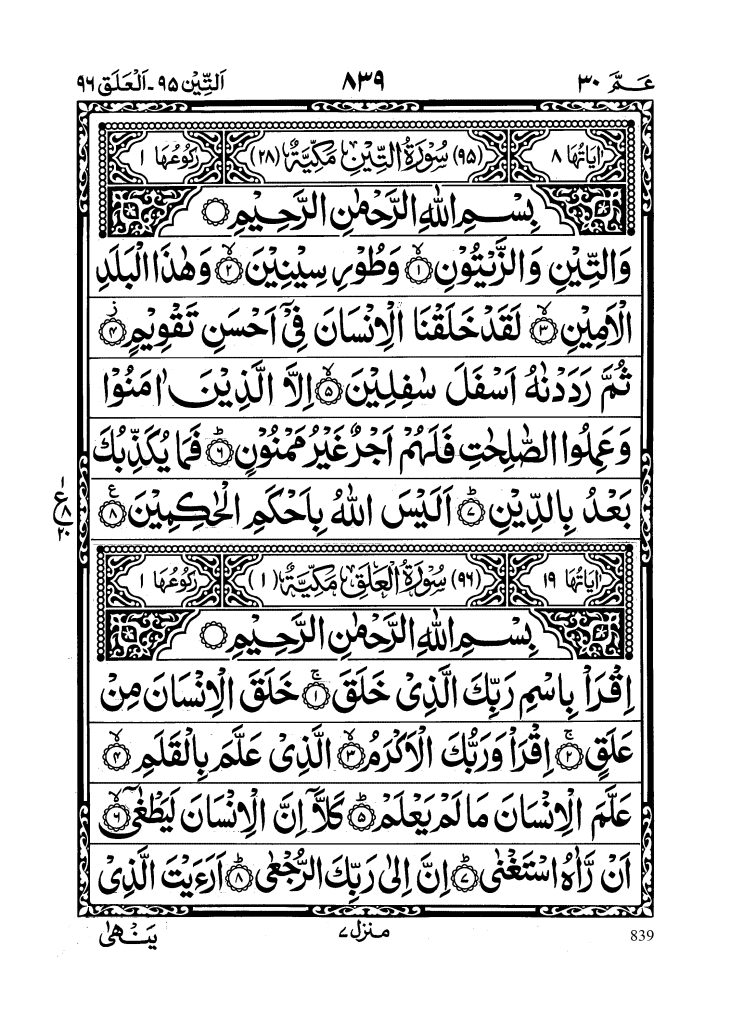 عَمَّ ۳۰ ۸۳۹ اَلتِّيْن ۹۵ - اَلْعَلَق ۹۶
اٰيَاتُهَا ۸ (۹۵) سُوْرَةُ التِّيْنِ مَكِّيَّةٌ (۲۸) رُكُوْعُهَا ۱
بِسْمِ اللّٰهِ الرَّحْمٰنِ الرَّحِيْمِ ○
وَالتِّيْنِ وَالزَّيْتُوْنِ ۙ﴿۱﴾ وَطُوْرِ سِيْنِيْنَ ۙ﴿۲﴾ وَهٰذَا الْبَلَدِ
الْاَمِيْنِ ۙ﴿۳﴾ لَقَدْ خَلَقْنَا الْاِنْسَانَ فِيْٓ اَحْسَنِ تَقْوِيْمٍ ز﴿۴﴾
ثُمَّ رَدَدْنٰهُ اَسْفَلَ سٰفِلِيْنَ ۙ﴿۵﴾ اِلَّا الَّذِيْنَ اٰمَنُوْا
وَعَمِلُوا الصّٰلِحٰتِ فَلَهُمْ اَجْرٌ غَيْرُ مَمْنُوْنٍ ؕ﴿۶﴾ فَمَا يُكَذِّبُكَ
بَعْدُ بِالدِّيْنِ ؕ﴿۷﴾ اَلَيْسَ اللّٰهُ بِاَحْكَمِ الْحٰكِمِيْنَ ع﴿۸﴾
۱ ع ۸ ۲۰
اٰيَاتُهَا ۱۹ (۹۶) سُوْرَةُ الْعَلَقِ مَكِّيَّةٌ (۱) رُكُوْعُهَا ۱
بِسْمِ اللّٰهِ الرَّحْمٰنِ الرَّحِيْمِ ○
اِقْرَاْ بِاسْمِ رَبِّكَ الَّذِيْ خَلَقَ ۚ﴿۱﴾ خَلَقَ الْاِنْسَانَ مِنْ
عَلَقٍ ۚ﴿۲﴾ اِقْرَاْ وَرَبُّكَ الْاَكْرَمُ ۙ﴿۳﴾ الَّذِيْ عَلَّمَ بِالْقَلَمِ ۙ﴿۴﴾
عَلَّمَ الْاِنْسَانَ مَا لَمْ يَعْلَمْ ؕ﴿۵﴾ كَلَّاۤ اِنَّ الْاِنْسَانَ لَيَطْغٰۤى ۙ﴿۶﴾
اَنْ رَّاٰهُ اسْتَغْنٰى ؕ﴿۷﴾ اِنَّ اِلٰى رَبِّكَ الرُّجْعٰى ؕ﴿۸﴾ اَرَءَيْتَ الَّذِيْ
839 منزل ۷ يَنْهٰى